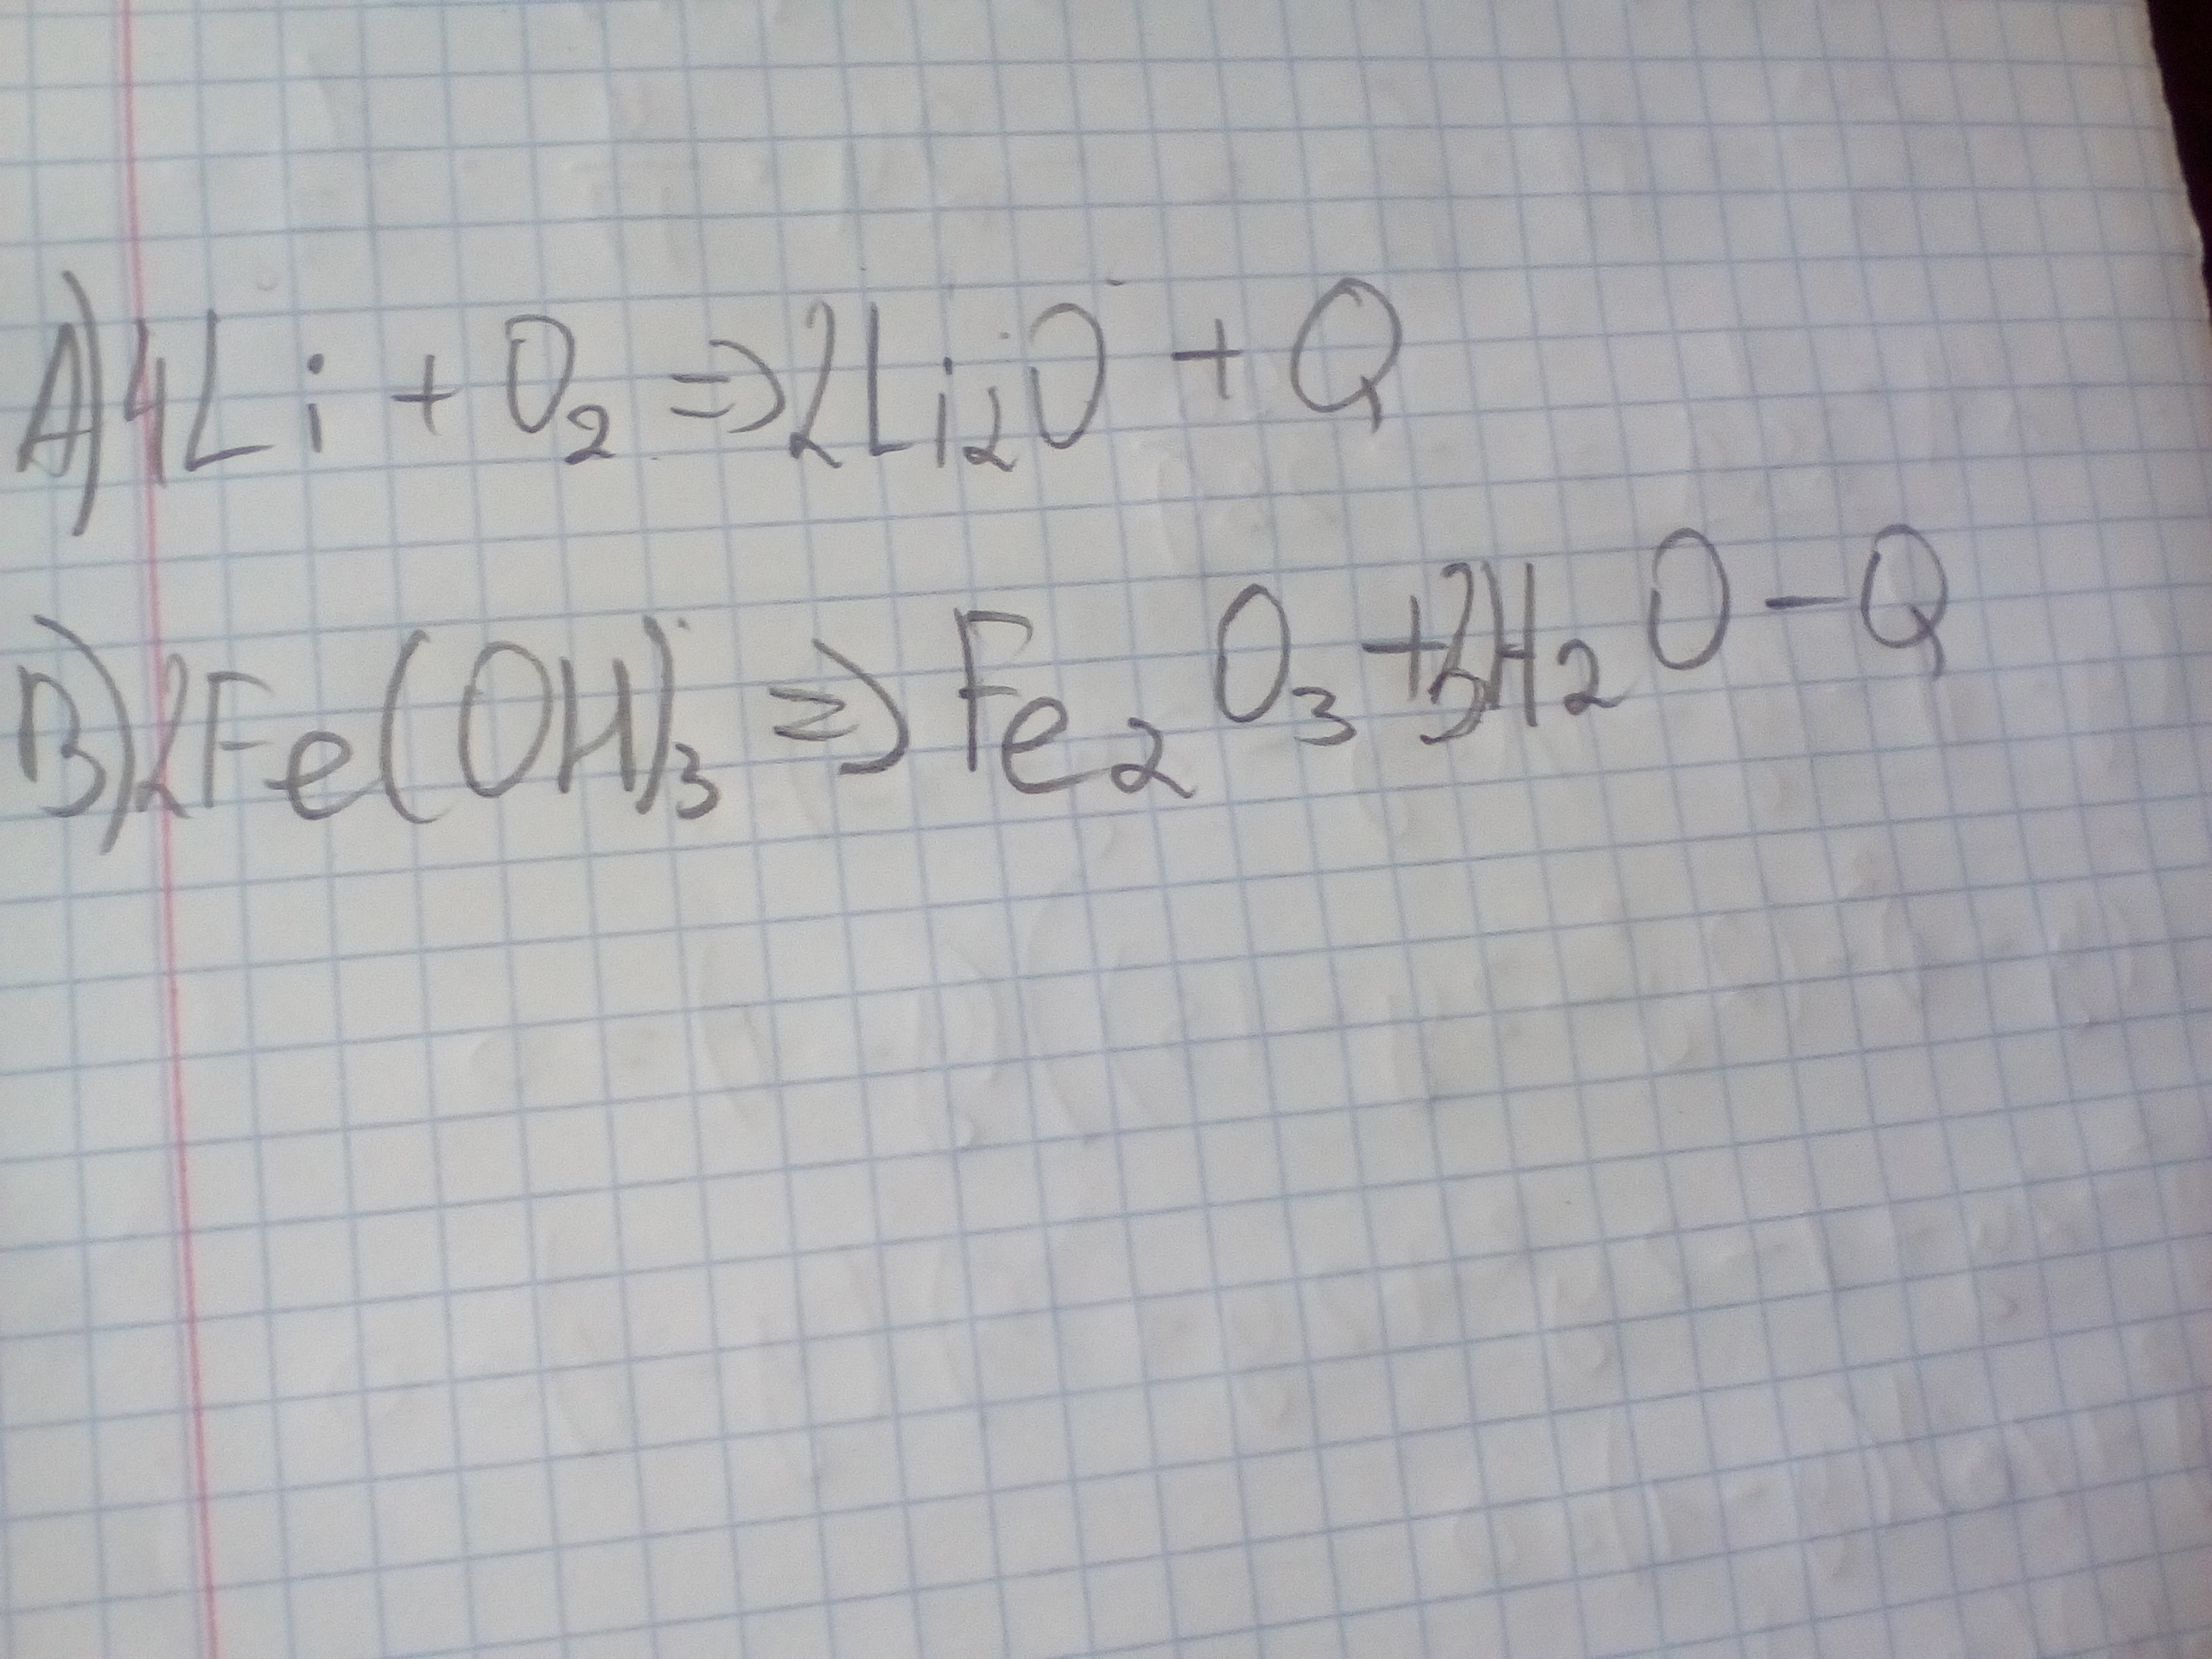 A) 4Li + O₂ => 2Li₂O + Q
B) 2Fe(OH)₃ => Fe₂O₃ + 3H₂O - Q